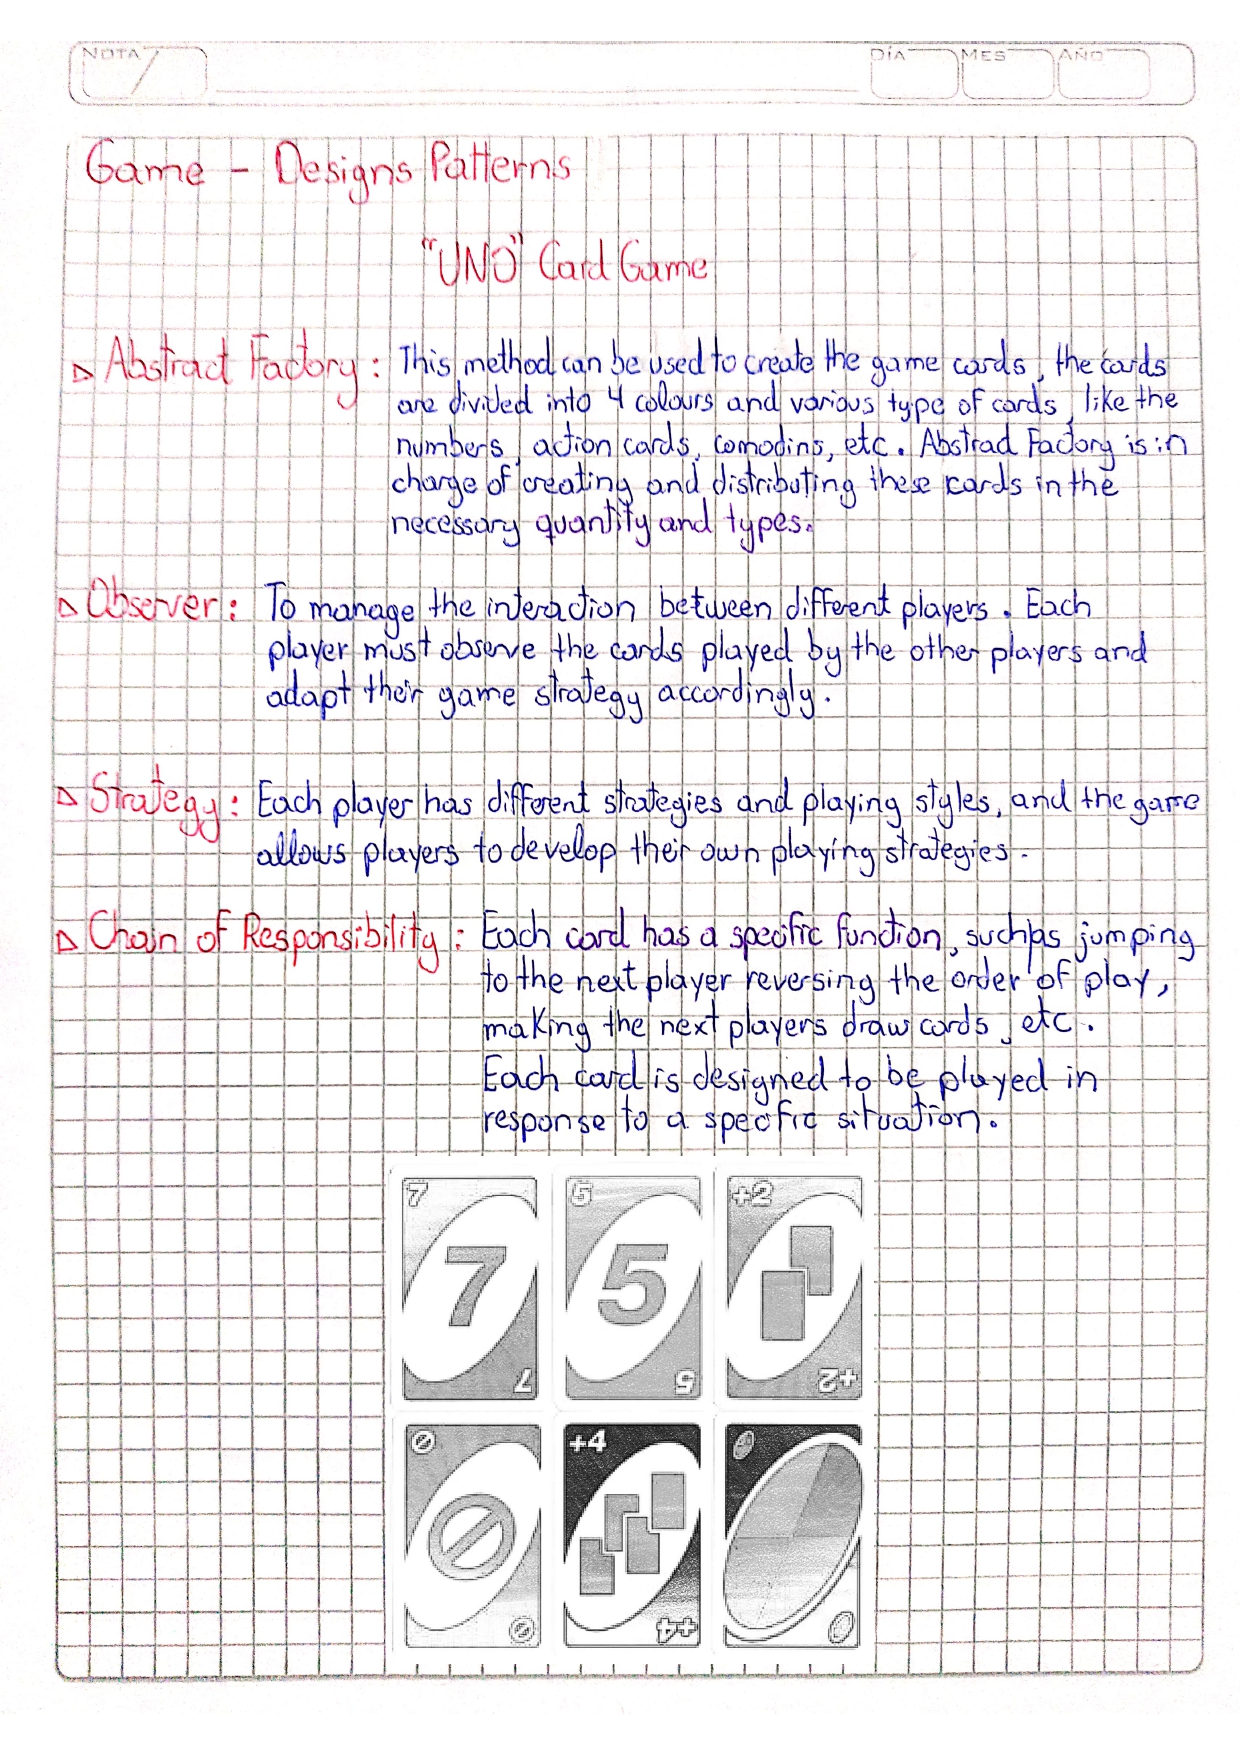 NOTA 7
DÍA MES AÑO
Game - Designs Patterns
"UNO" Card Game
Abstract Factory: This method can be used to create the game cards, the cards
are divided into 4 colours and various type of cards, like the
numbers, action cards, comodins, etc. Abstract Factory is in
charge of creating and distributing these cards in the
necessary quantity and types.
Observer: To manage the interaction between different players. Each
player must observe the cards played by the other players and
adapt their game strategy accordingly.
Strategy: Each player has different strategies and playing styles, and the game
allows players to develop their own playing strategies.
Chain of Responsibility: Each card has a specific function, such as jumping
to the next player reversing the order of play,
making the next players draw cards, etc.
Each card is designed to be played in
response to a specific situation.
7 5 +2
7 5
7 5 +2
+4
+4